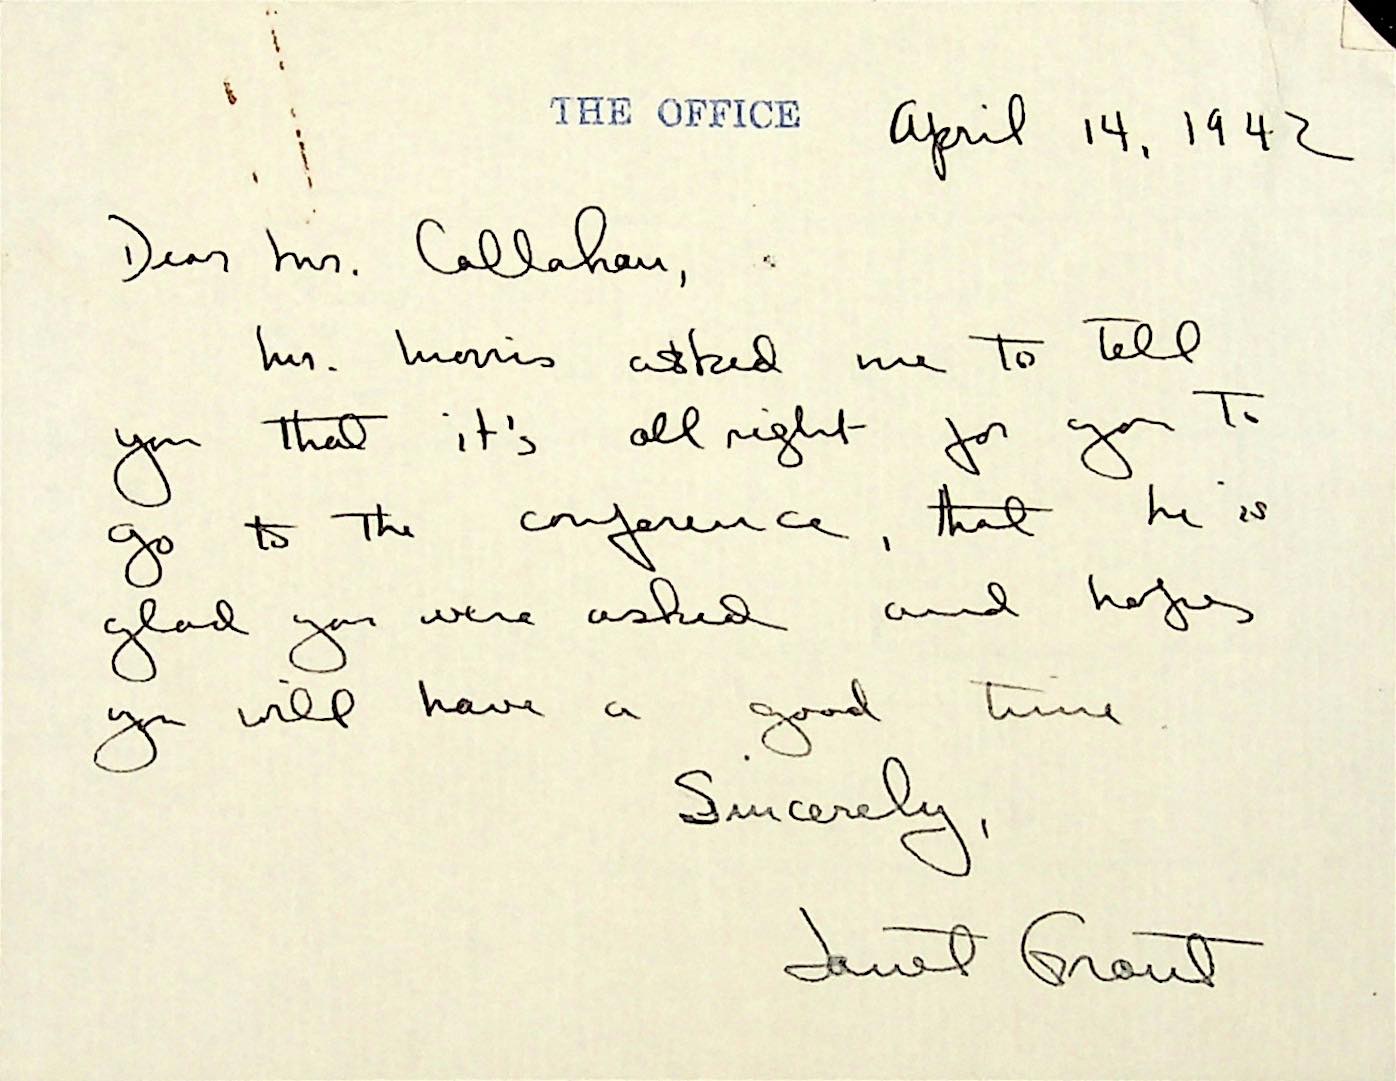 THE OFFICE April 14, 1942
Dear Mr. Callahan,
Mr. Morris asked me to tell
you that it's all right for you to
go to the conference, that he is
glad you were asked and hopes
you will have a good time.
Sincerely,
Janet Grant